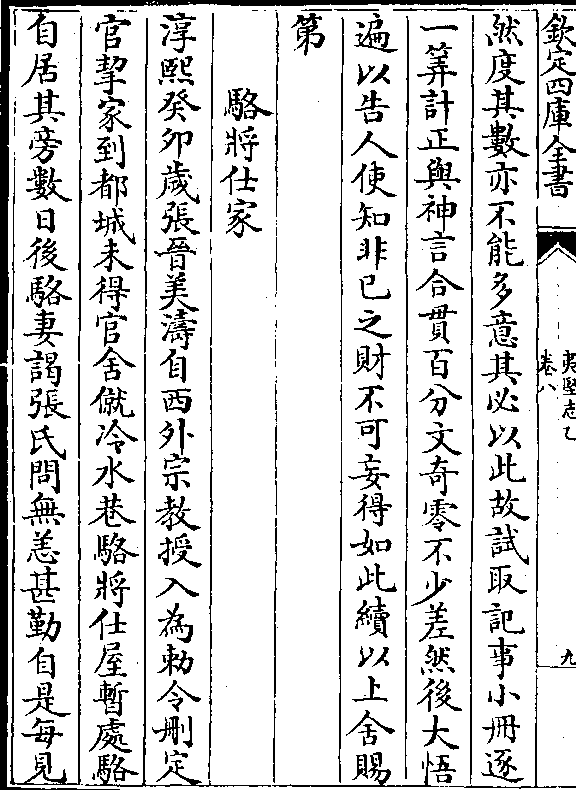 欽定四庫全書
夷堅志乙
卷八
九
然度其數亦不能多意其必以此故試取記事小冊逐
一筭計正與神言合貫百分文奇零不少差然後大悟
遍以告人使知非已之財不可妄得如此續以上舍賜
第
駱將仕家
淳熙癸卯歲張晉美濤自西外宗教授入為勅令刪定
官挈家到都城未得官舍僦冷水巷駱將仕屋暫處駱
自居其旁數日後駱妻謁張氏問無恙甚勤自是每見